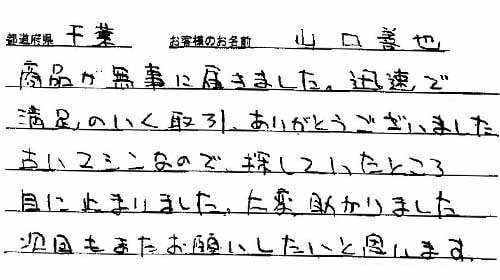 都道府県 千葉 お客様のお名前 山口善也
商品が無事に届きました。迅速で
満足のいく取引、ありがとうございました
古いマシンなので、探していたところ
目に止まりました。大変助かりました
次回もまたお願いしたいと思います。